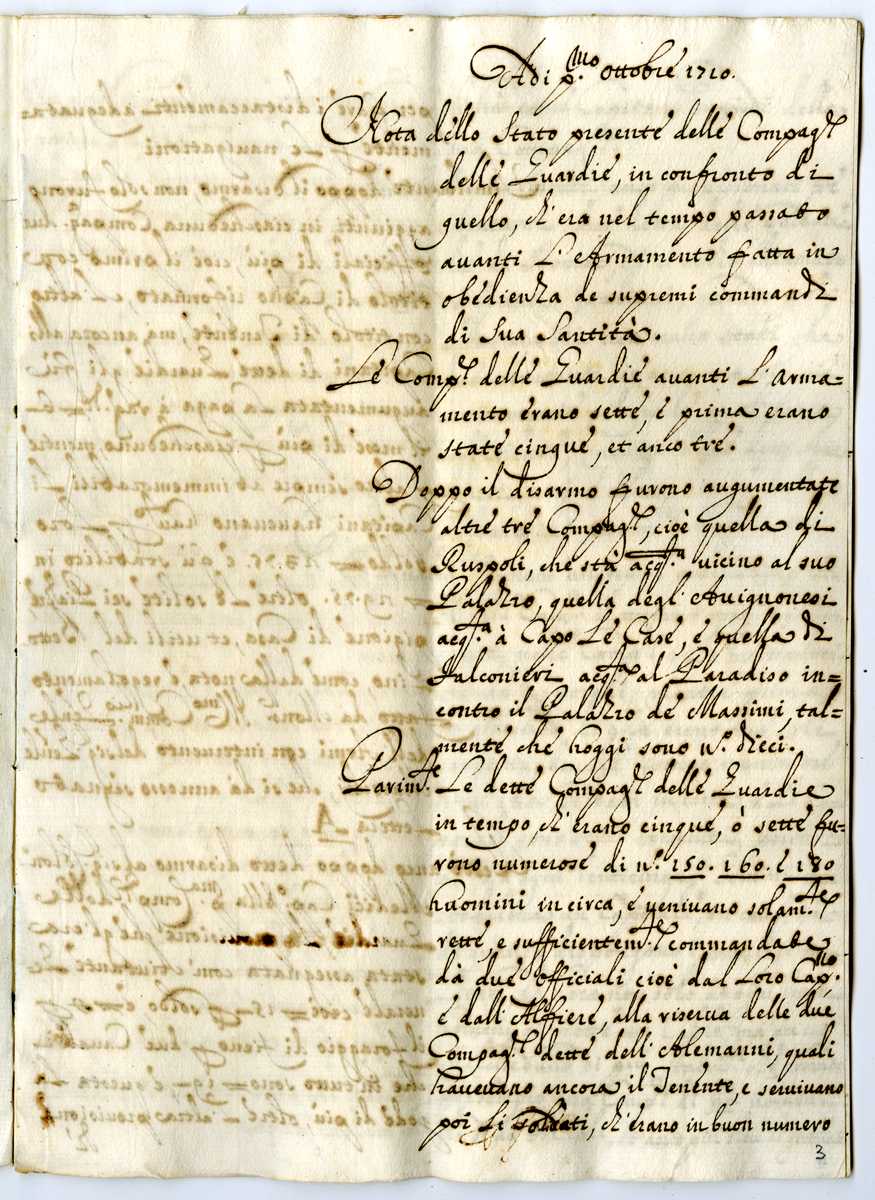 Adi p.mo Ottobre 1710.
Nota dello stato presente delle Compag.e
delle Guardie, in confronto di
quello, ch'era nel tempo passato
avanti L'Armamento fatta in
obedienza de supremi commandi
di Sua Santità.
Le Comp.e delle Guardie avanti l'arma=
mento erano sette, e prima erano
state cinque, et anco tre.
Doppo il disarmo furono augumentate
altre tre Compag.e, cioè quella di
Ruspoli, che stà acq.ta vicino al suo
Palazzo, quella degl'Auignonesi
acq.ta à Capo Le Case, e quella di
Falconieri acq.ta al Paradiso in=
contro il Palazzo de Massimi, tal=
mente che hoggi sono n.o dieci.
Parim.te Le dette Compag.e delle Guardie
in tempo, ch'erano cinque, ò sette fu=
rono numerose di n.o 150. 160. e 180
huomini in circa, e uenivano solam.te
rette, e sufficientem.te commandate
dà due Officiali cioè dal Loro Cap.no
e dall'Alfiere, alla riserua delle due
Compag.e dette dell'Alemanni, quali
haveuano ancora il Tenente, e seruivano
poi li soldati, ch'erano in buon numero
3